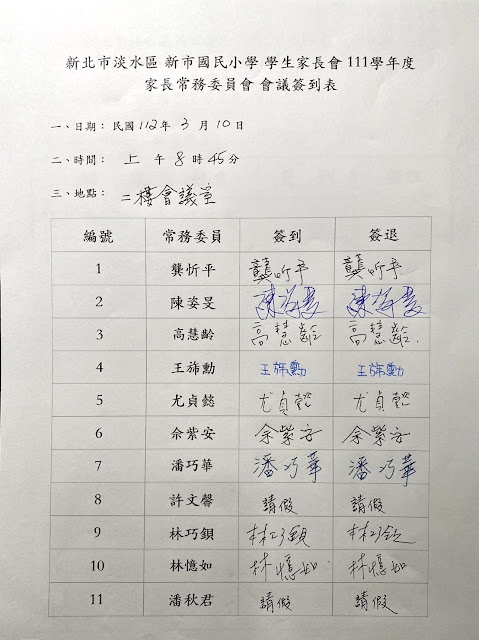 新北市淡水區 新市國民小學 學生家長會 111學年度
家長常務委員會 會議簽到表
一、日期： 民國 112 年 3 月 10 日
二、時間： 上 午 8 時 45 分
三、地點： 二樓會議室
編號 常務委員 簽到 簽退
1 龔忻平 龔忻平 龔忻平
2 陳姿旻
3 高慧齡 高慧齡 高慧齡
4 王斾勳 王斾勳 王斾勳
5 尤貞懿 尤貞懿 尤貞懿
6 佘紫安 佘紫安 佘紫安
7 潘巧華 潘巧華 潘巧華
8 許文馨 請假 請假
9 林巧鋇 林巧鋇 林巧鋇
10 林憶如 林憶如 林憶如
11 潘秋君 請假 請假